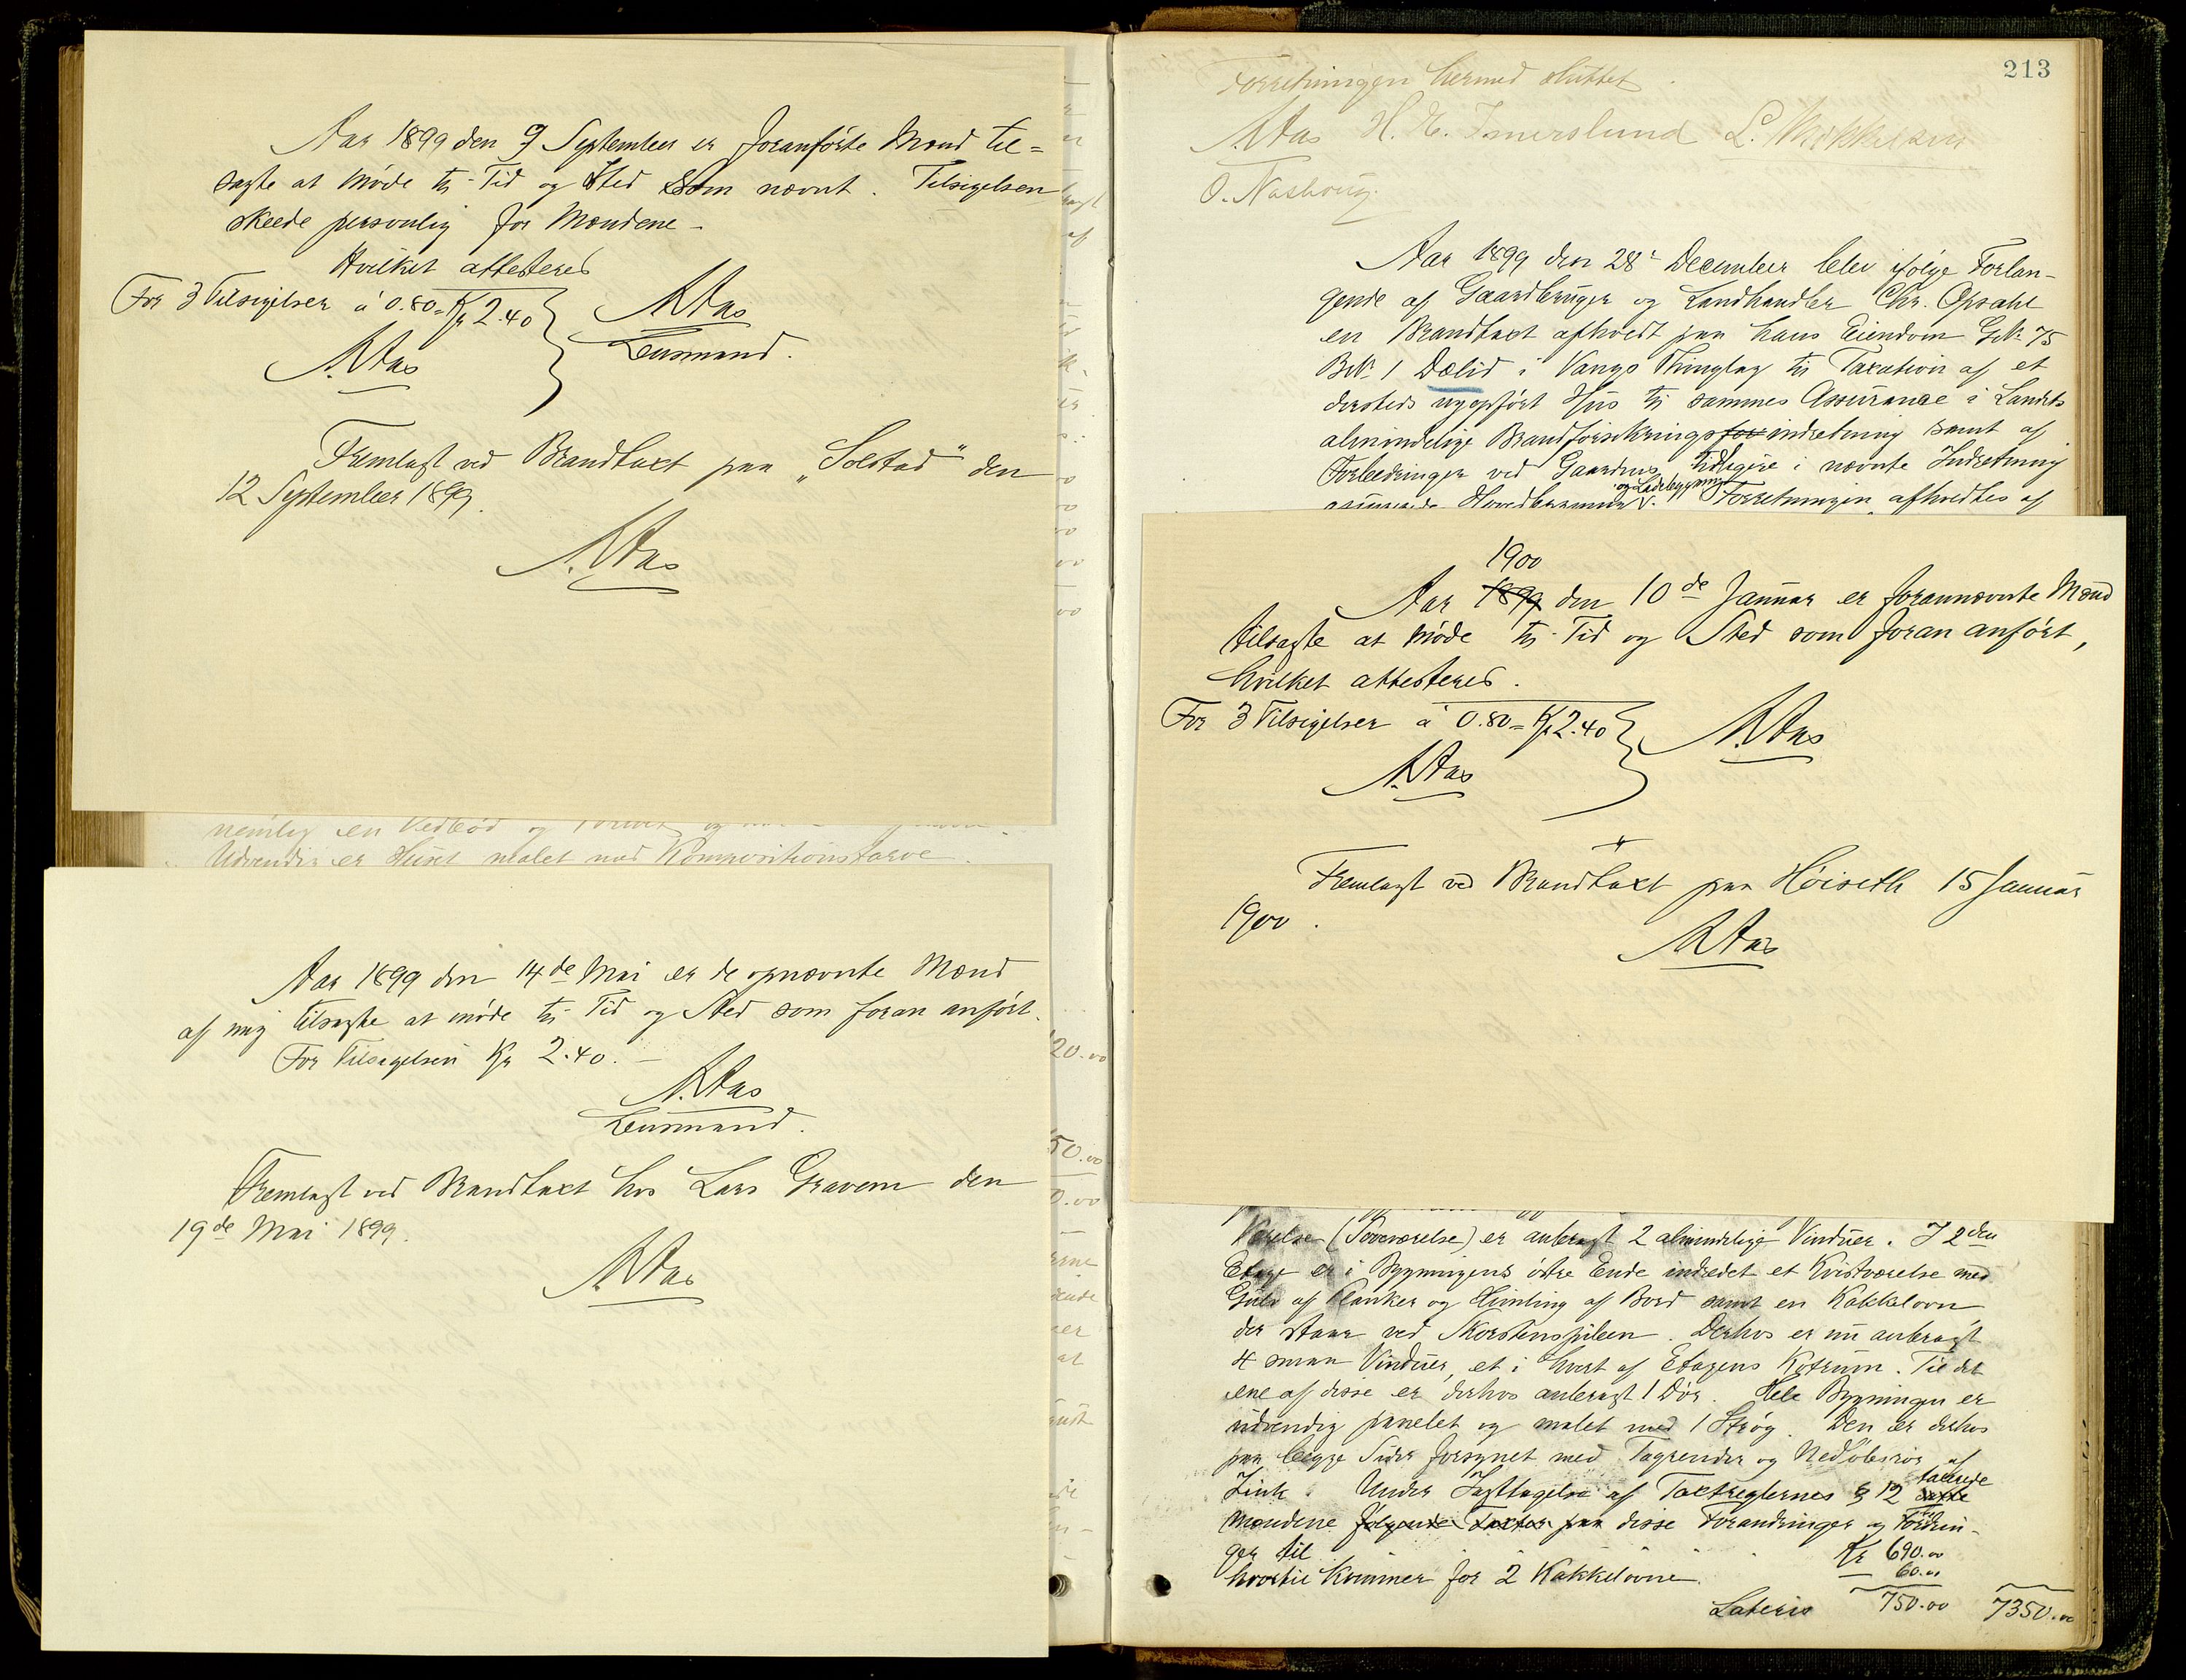 Aar 1899 den 9 September er foranførte Mænd til=
sagte at møde til Tid og Sted som nævnt. Tilsigelsen
skeede personlig for Mændene –
Hvilket attesteres
For 3 Tilsigelser á 0.80 = Kr 2.40
A. Aas
Lensmand.
A. Aas
Fremlagt ved Brandtaxt paa „Solstad" den
12 September 1899.
A. Aas
nemlig en Vedbod og
Udvendig er Huset malet med Kompositionsfarve.
Aar 1899 den 14de Mai er de opnævnte Mænd
af mig tilsagte at møde til Tid og Sted som foran anført.
For Tilsigelsen Kr 2.40. –
A. Aas
Lensmand.
Fremlagt ved Brandtaxt hos Lars Gravem den
19de Mai 1899.
A. Aas
213
Forretningen hermed sluttet.
A. Aas H. E. Imerslund L. Mikkelsen
O. Nashoug.
Aar 1899 den 28de December blev ifølge Forlan-
gende af Gaardbruger og Landhandler Chr. Opsahl
en Brandtaxt afholdt paa hans Eiendom GNr 75
BNr 1 Dælid i Vangs Thinglag til Taxation af et
dersteds nyopført Hus til sammes Assurance i Landets
almindelige Brandforsikringsforindretning samt af
Forbedringer ved Gaardens tidligere i nævnte Indretning
og Ladebygning
Hovedbygning. Forretningen afholdtes af
1900
Aar 1899 den 10de Januar er forannævnte Mænd
tilsagte at møde til Tid og Sted som foran anført,
hvilket attesteres.
For 3 Tilsigelser á 0.80 = Kr 2.40
A. Aas
A. Aas
Fremlagt ved Brandtaxt paa Høiseth 15 Januar
1900.
A. Aas
Værelse (Soveværelse) er anbragt 2 almindelige Vinduer. I 2den
Etage er i Bygningens østre Ende indredet et Kvistværelse med
Gulv af Planker og Himling af Bord samt en Kakkelovn
der staar ved Skorstenspiben. Derhos er nu anbragt
4 smaa Vinduer, et i hvert af Etagens Kotrum. Til det
ene af disse er derhos anbragt 1 Dør. Hele Bygningen er
udvendig panelet og malet med 1 Strøg. Den er derhos
paa begge Sider forsynet med Tagrender og Nedløbsrør af
Zink. Under Iagttagelse af Taxtreglernes § 12 taxerede
Mændene følgende Taxter paa disse Forandringer og Fordrin-
ger til Kr 690.00
hvortil kommer for 2 Kakkelovne. — 60.00
Lateris 750.00 7350.00